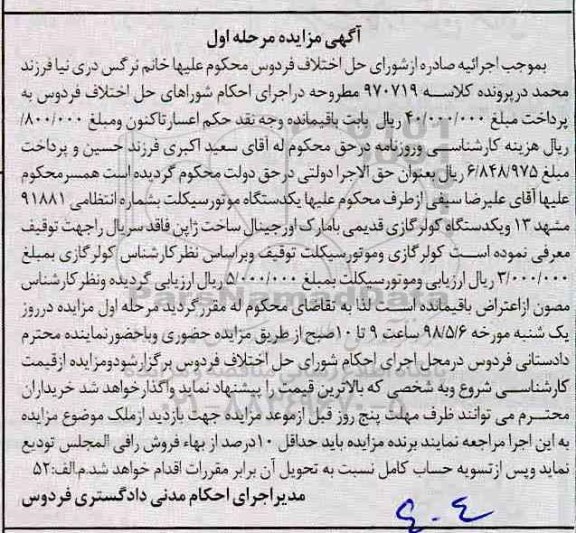 آگهی مزایده مرحله اول
بموجب اجرائیه صادره ازشورای حل اختلاف فردوس محکوم علیها خانم نرگس دری نیا فرزند
محمد درپرونده کلاسه ۹۷۰۷۱۹ مطروحه دراجرای احکام شوراهای حل اختلاف فردوس به
پرداخت مبلغ ۴۰/۰۰۰/۰۰۰ ریال بابت باقیمانده وجه نقد حکم اعسارتاکنون ومبلغ ۸۰۰/۰۰۰/
ریال هزینه کارشناسی وروزنامه درحق محکوم له آقای سعید اکبری فرزند حسین و پرداخت
مبلغ ۶/۸۴۸/۹۷۵ ریال بعنوان حق الاجرا دولتی درحق دولت محکوم گردیده است همسرمحکوم
علیها آقای علیرضا سیفی ازطرف محکوم علیها یکدستگاه موتورسیکلت بشماره انتظامی ۹۱۸۸۱
مشهد ۱۳ ویکدستگاه کولرگازی قدیمی بامارک اورجینال ساخت ژاپن فاقد سریال راجهت توقیف
معرفی نموده است کولرگازی وموتورسیکلت توقیف وبراساس نظرکارشناس کولرگازی بمبلغ
۳/۰۰۰/۰۰۰ ریال ارزیابی وموتورسیکلت بمبلغ ۵/۰۰۰/۰۰۰ ریال ارزیابی گردیده ونظرکارشناس
مصون ازاعتراض باقیمانده است لذا به تقاضای محکوم له مقررگردید مرحله اول مزایده درروز
یک شنبه مورخه ۹۸/۵/۶ ساعت ۹ تا ۱۰صبح از طریق مزایده حضوری وباحضورنماینده محترم
دادستانی فردوس درمحل اجرای احکام شورای حل اختلاف فردوس برگزارشودومزایده ازقیمت
کارشناسی شروع وبه شخصی که بالاترین قیمت را پیشنهاد نماید واگذارخواهد شد خریداران
محترم می توانند ظرف مهلت پنج روز قبل ازموعد مزایده جهت بازدید ازملک موضوع مزایده
به این اجرا مراجعه نمایند برنده مزایده باید حداقل ۱۰درصد از بهاء فروش رافی المجلس تودیع
نماید وپس ازتسویه حساب کامل نسبت به تحویل آن برابر مقررات اقدام خواهد شد.م‌الف:۵۲
مدیراجرای احکام مدنی دادگستری فردوس
۴۰۴
ParsNamadData